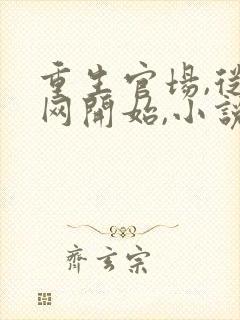 重生官場,從
网開始,小說
齊玄宗